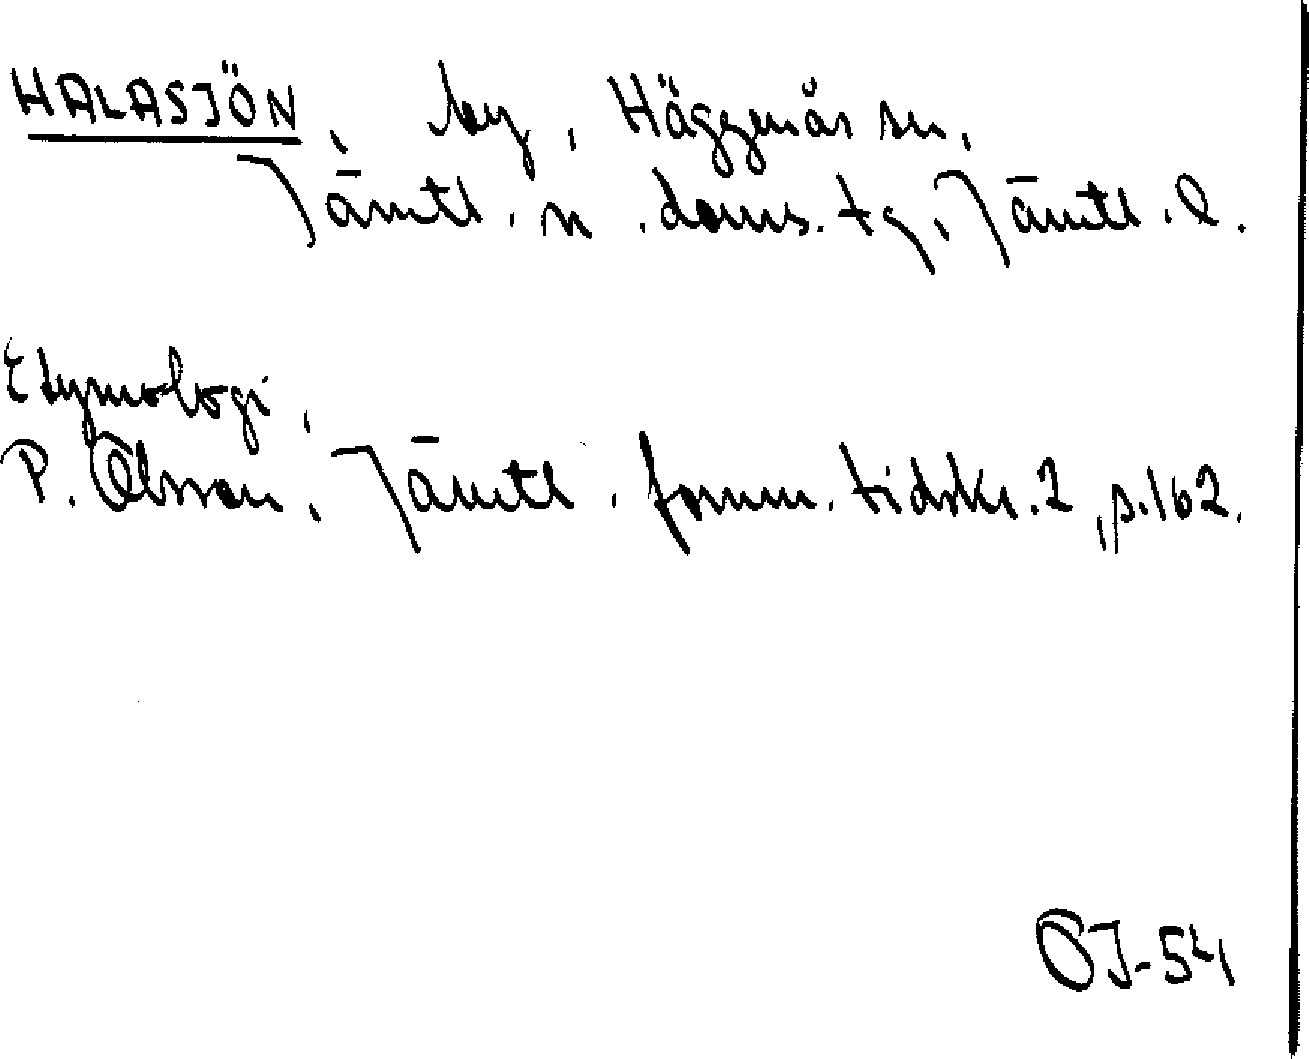 HALASJÖN, by, Häggenås sn,
Jämtl. n. doms. tg, Jämtl. l.
Etymologi,
P. Olsson, Jämtl. fornm. tidskr. 2, p. 162.
OJ-54